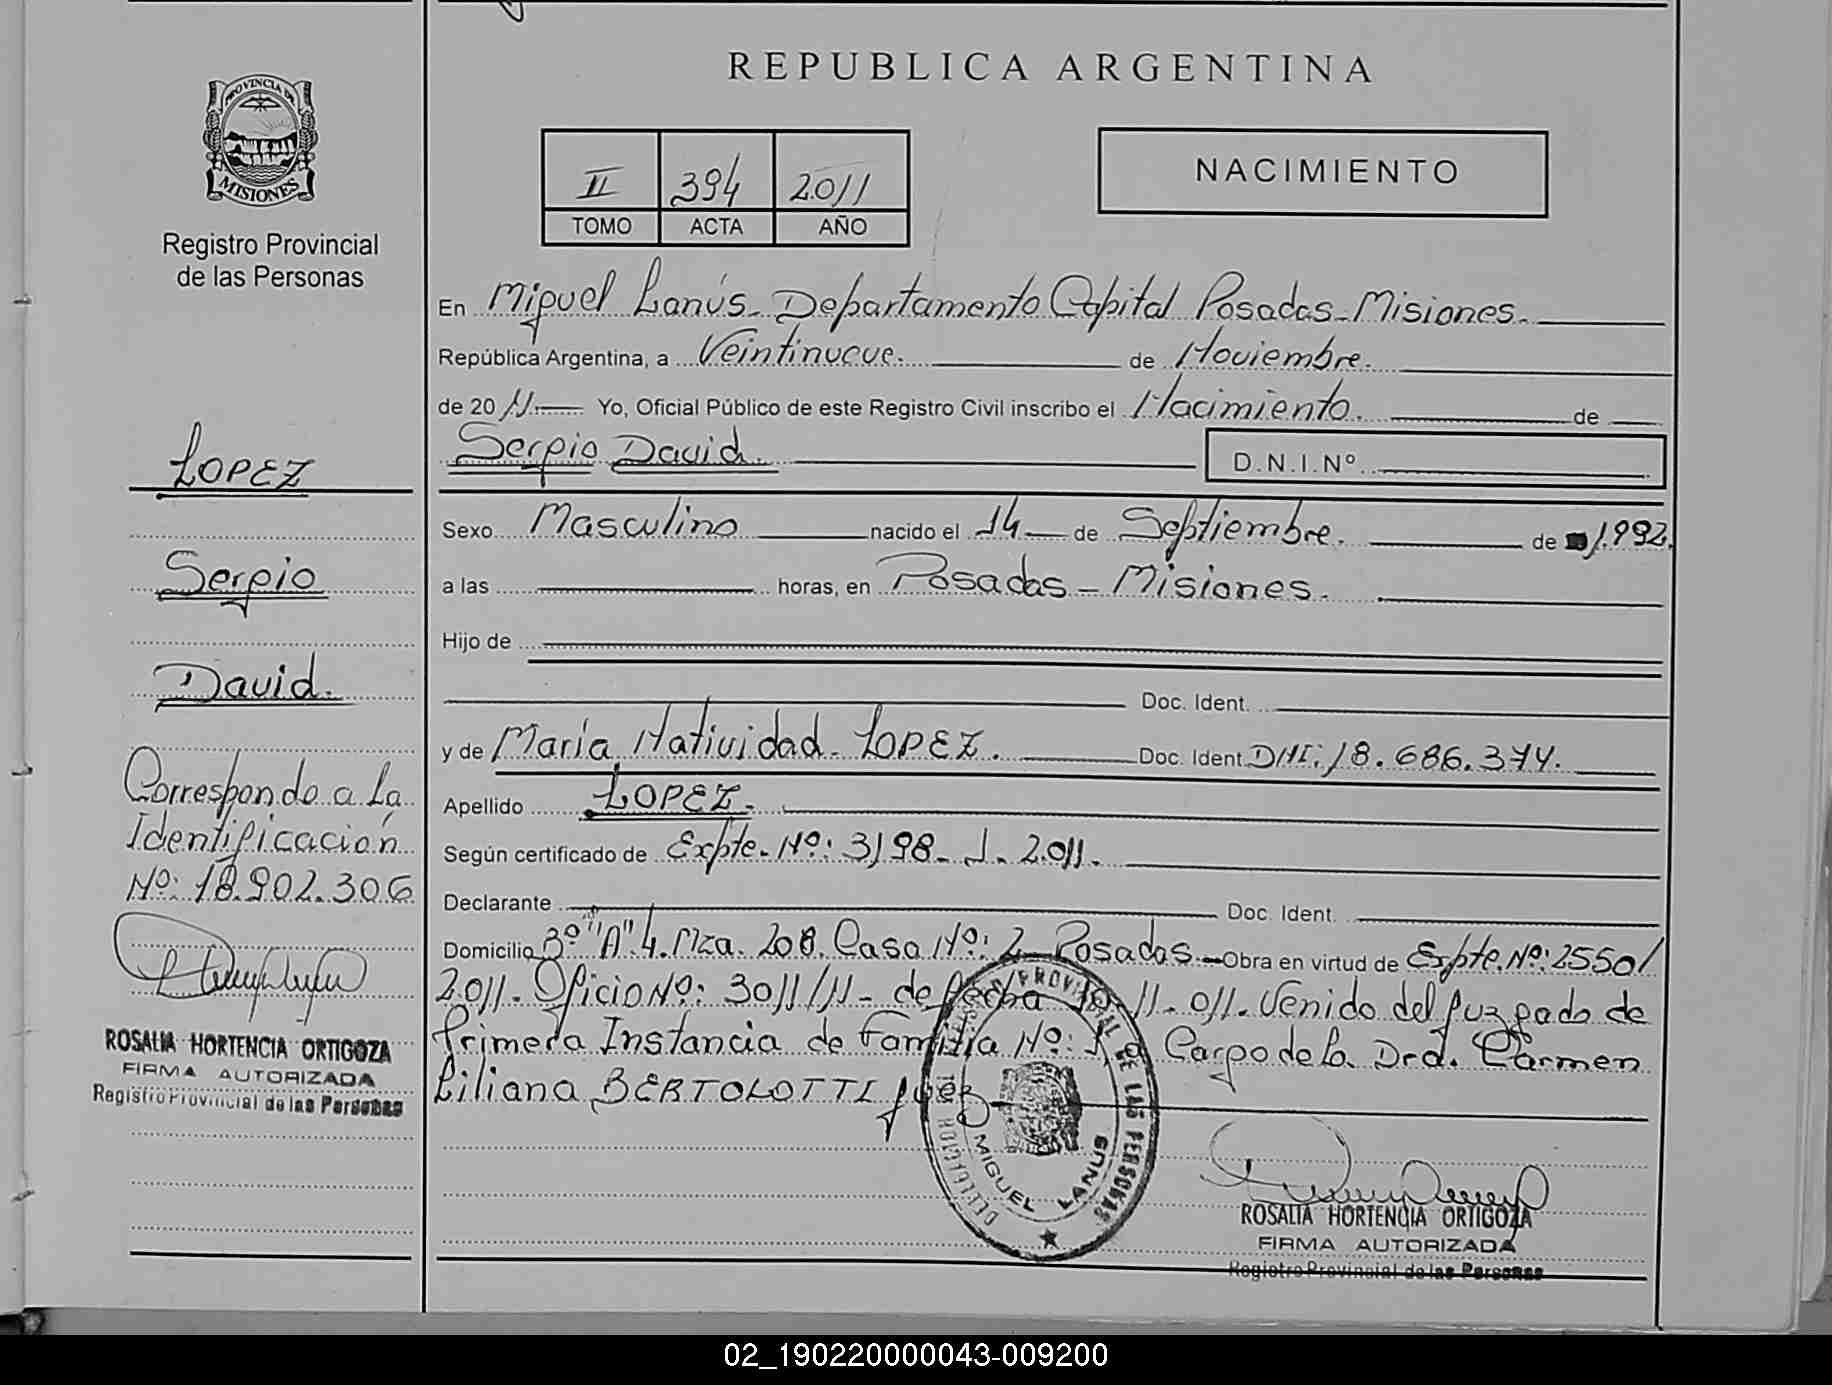 REPUBLICA ARGENTINA
PROVINCIA DE
MISIONES
Registro Provincial
de las Personas
II 394 2011
TOMO ACTA AÑO
NACIMIENTO
En Miguel Lanús - Departamento Capital Posadas - Misiones.
República Argentina, a Veintinueve. de Noviembre.
de 20 11 Yo, Oficial Público de este Registro Civil inscribo el Nacimiento. de
Sergio David.
D.N.I.Nº
Sexo Masculino nacido el 14 de Septiembre. de 1.992.
a las horas, en Posadas - Misiones.
Hijo de
Doc. Ident.
y de María Natividad LOPEZ. Doc. Ident. DNI: 18.686.374.
Apellido LOPEZ.
Según certificado de Expte. Nº: 3198 - J - 2.011.
Declarante Doc. Ident.
Domicilio Bº "A" 4. Mza. 208. Casa Nº: 2 - Posadas. Obra en virtud de Expte. Nº: 2550/
2.011. Oficio Nº: 3011/11 - de fecha 11 - 011. Venido del Juzgado de
Primera Instancia de Familia Nº: 1 a Cargo de la Dra. Carmen
Liliana BERTOLOTTI Juez
LOPEZ
Sergio
David.
Corresponde a La
Identificación
Nº: 18.902.306
ROSALIA HORTENCIA ORTIGOZA
FIRMA AUTORIZADA
Registro Provincial de las Personas
PROVINCIAL DE LAS PERSONAS
DELEGACION
MIGUEL LANUS
ROSALIA HORTENCIA ORTIGOZA
FIRMA AUTORIZADA
Registro Provincial de las Personas
02_190220000043-009200